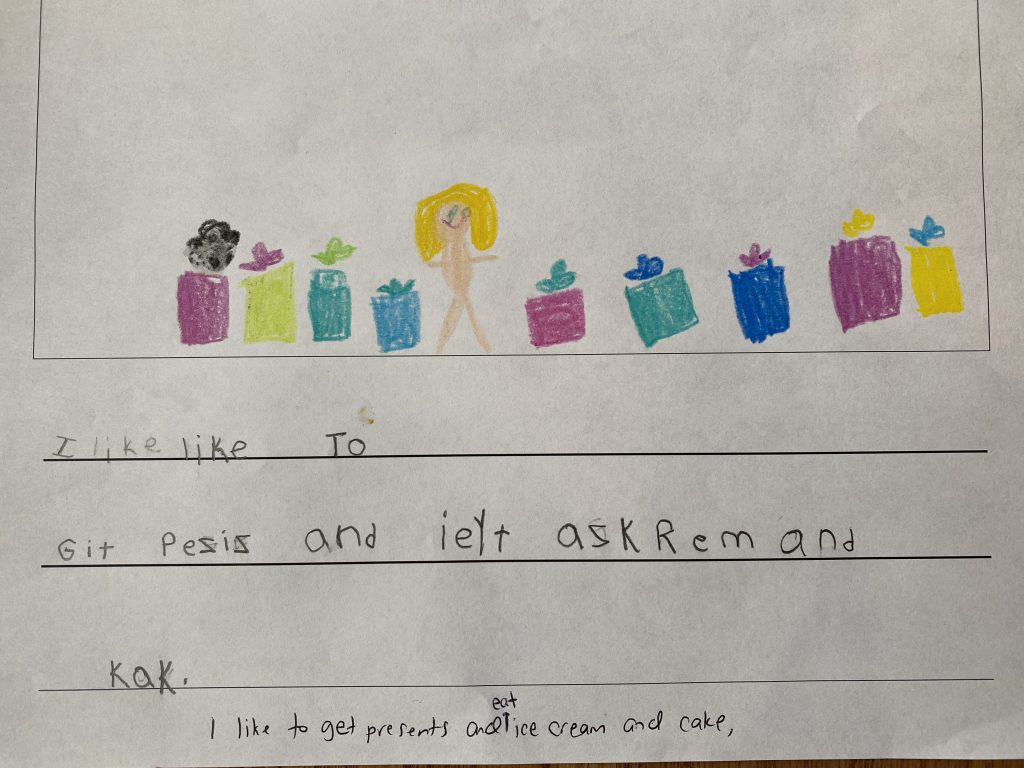 I like like To
Git Pesis and ielt askRem and
Kak.
eat
I like to get presents and ice cream and cake,